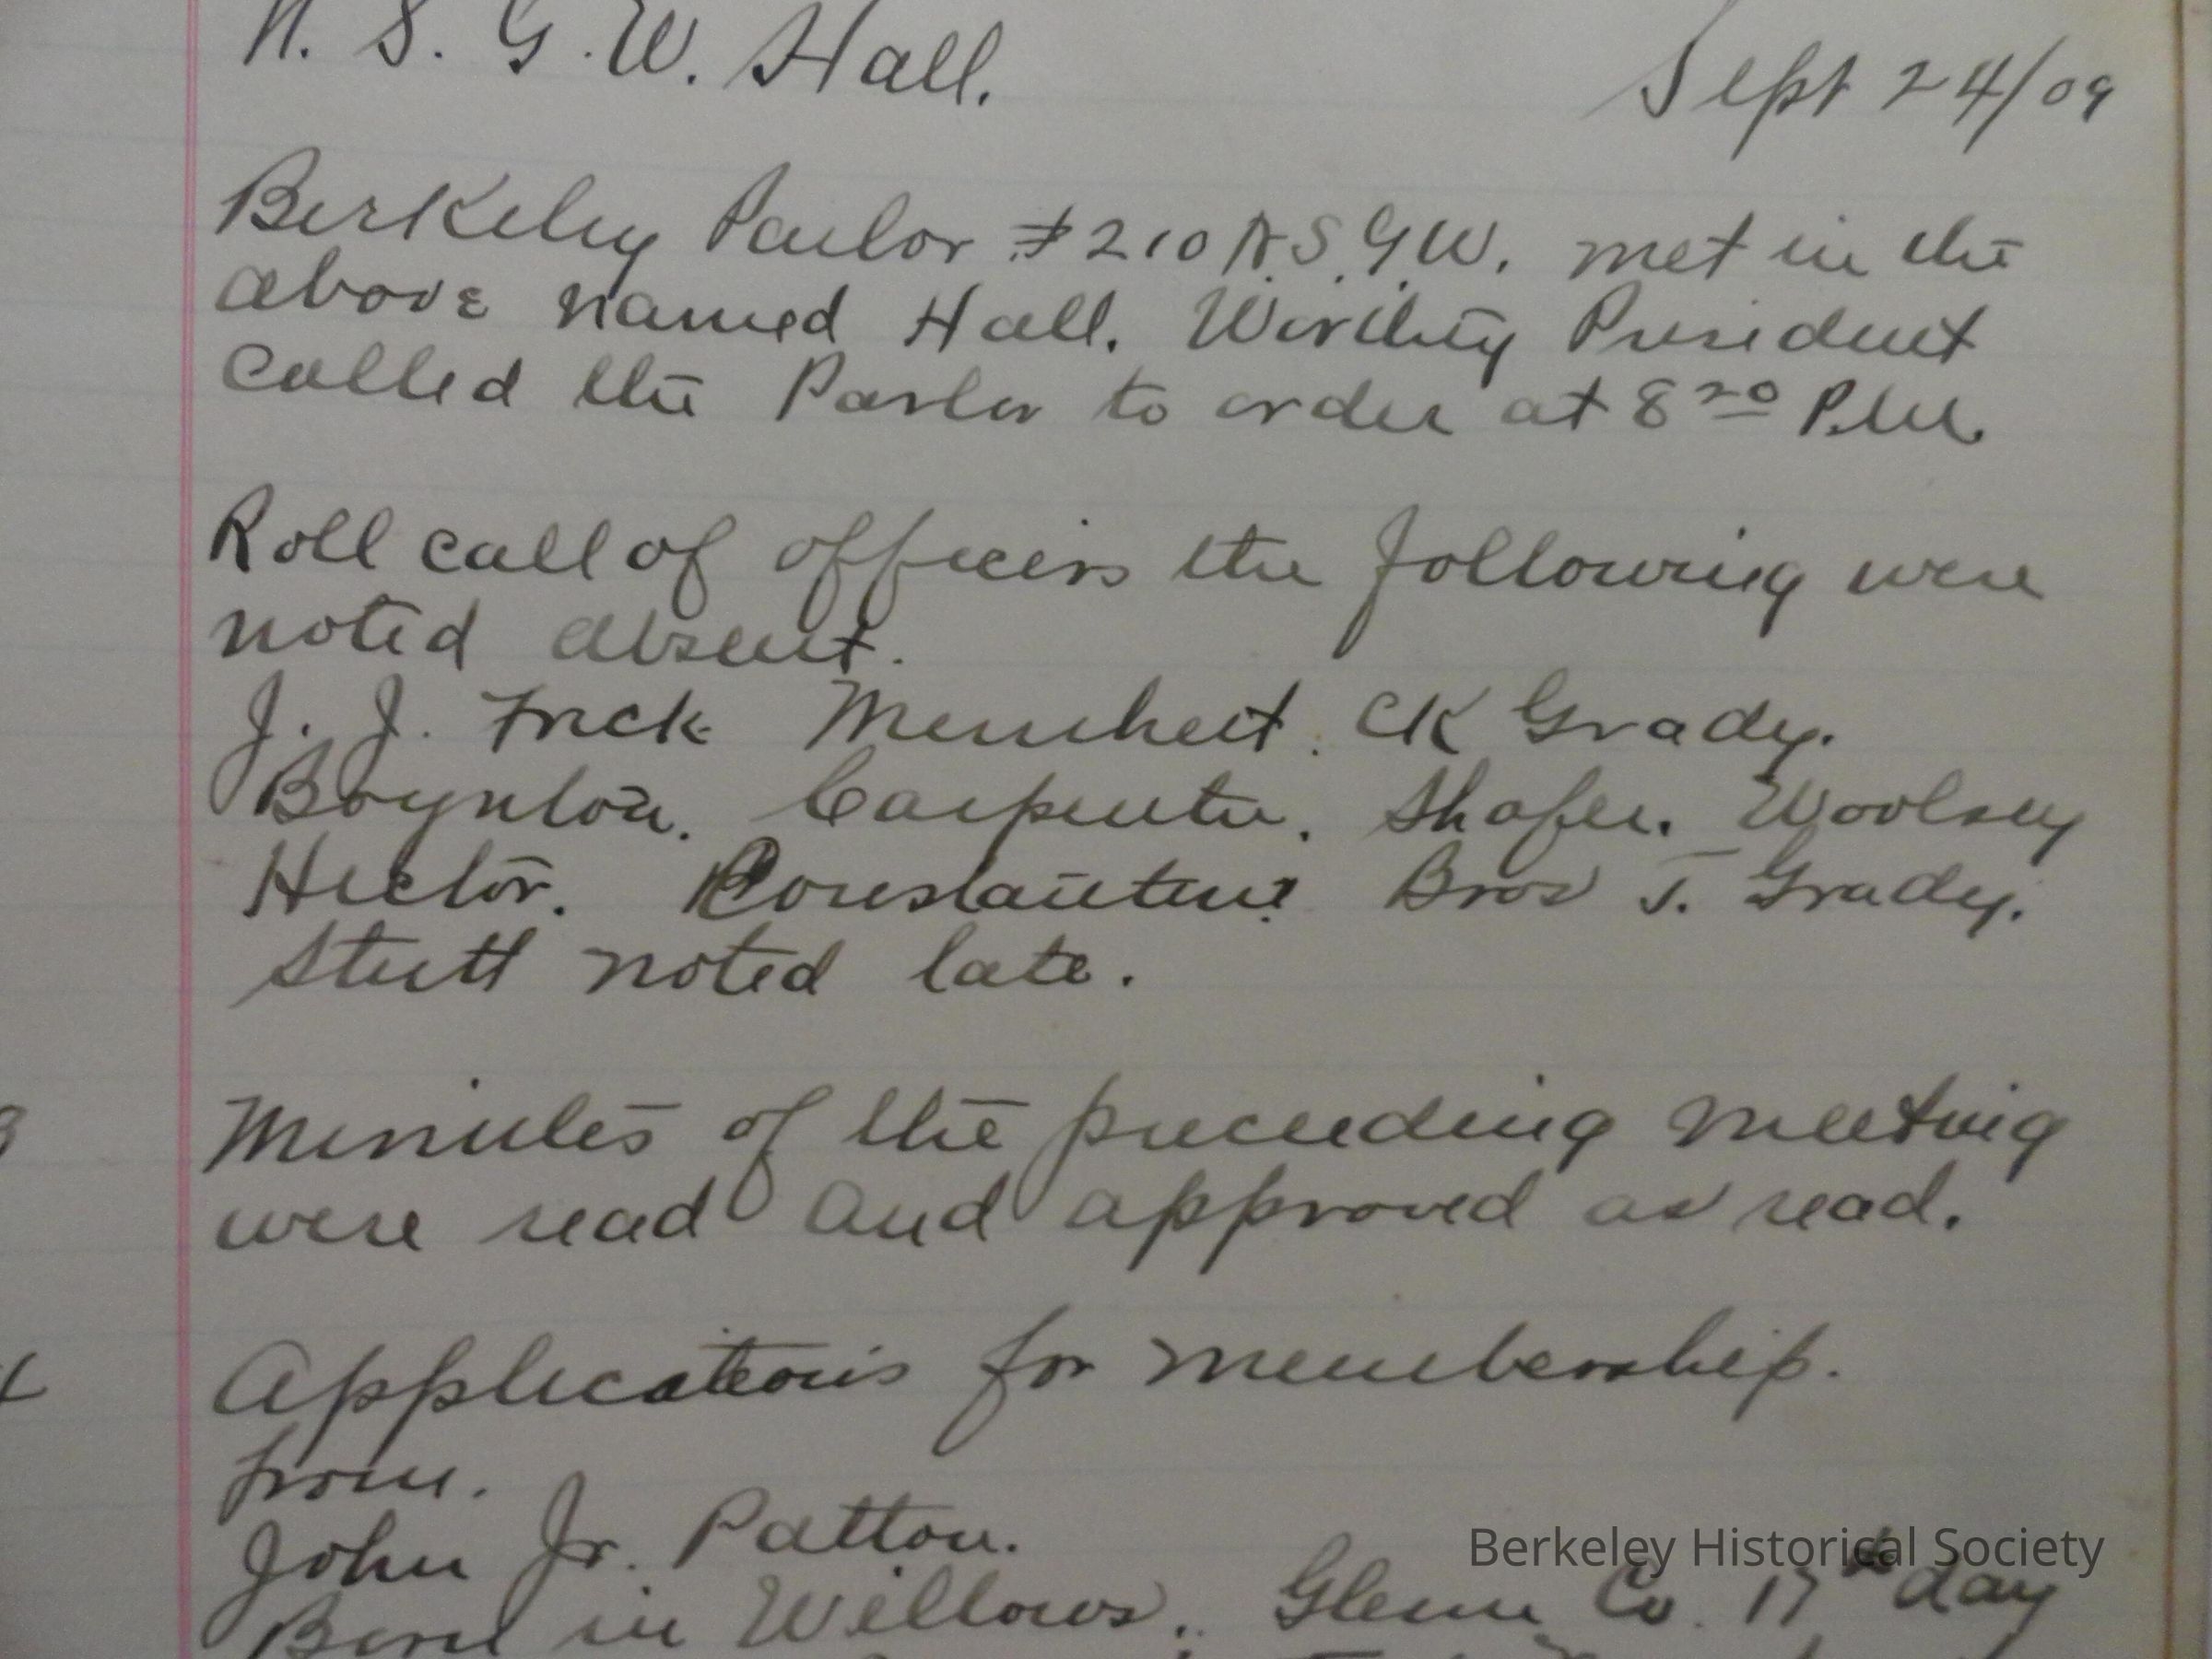 N. S. G. W. Hall. Sept 24/09
Berkeley Parlor #210 N.S.G.W. met in the
above named Hall. Worthy President
called the Parlor to order at 8 20 P.M.
Roll call of officers the following were
noted absent.
J. J. Frick CK Grady.
Boynton. Carpenter. Shafer. Woolsey
Hector. Constantine Bros J. Grady.
noted late.
3
Minutes of the preceeding meeting
were read and approved as read.
4
Applications for membership.
from.
John Jr. Patton.
Berkeley Historical Society
Born in Willows. Glenn Co. 17th day